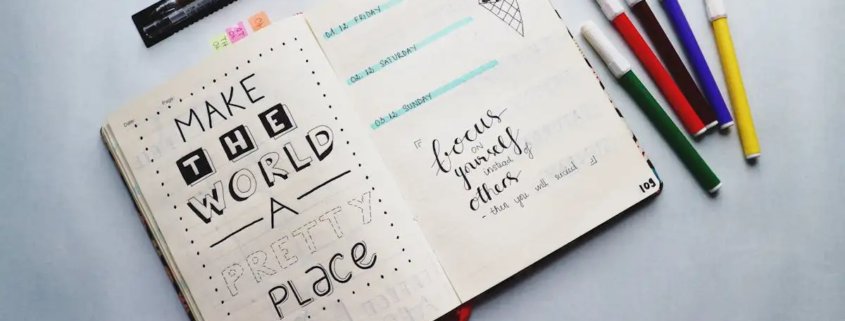 Date:
Page:
MAKE
THE
WORLD
A
PRETTY
PLACE
01 12 FRIDAY
02 12 SATURDAY
03 12 SUNDAY
focus
on
yourself
instead of
others
- then you will succeed
109